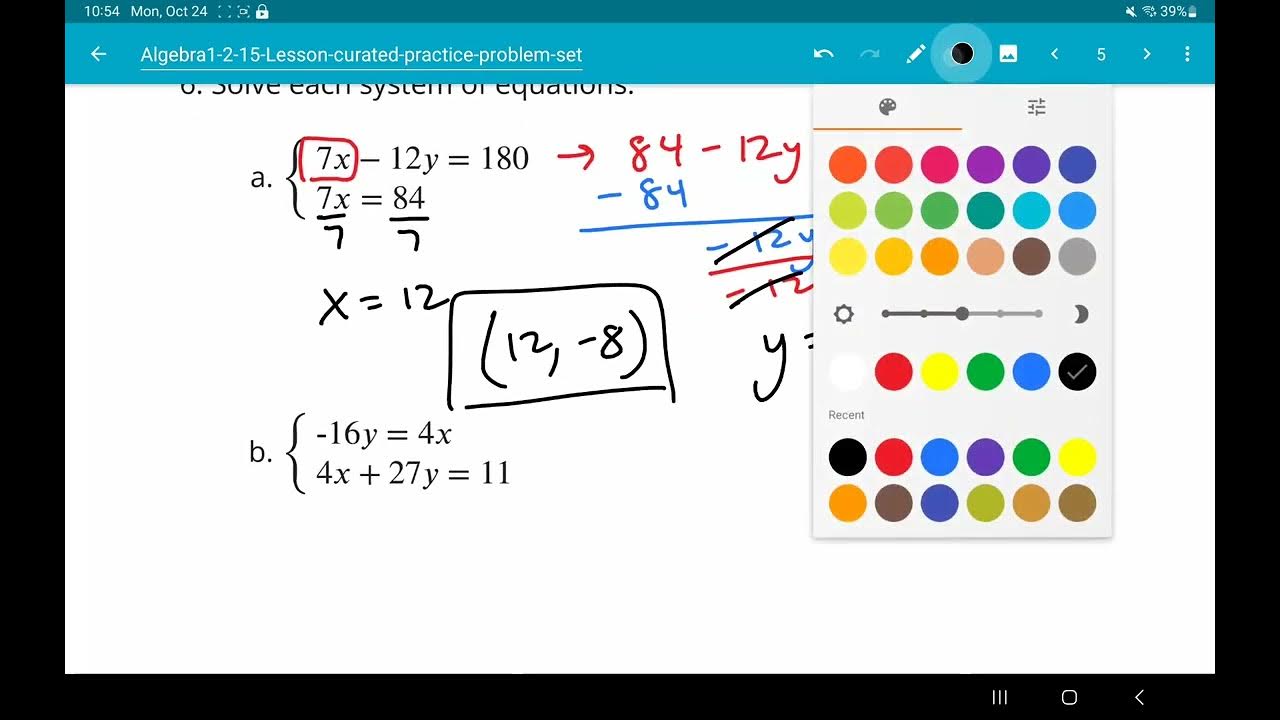 10:54 Mon, Oct 24
39%
Algebra1-2-15-Lesson-curated-practice-problem-set
5
6. Solve each system of equations.
a. 7x – 12y = 180 → 84 – 12y
7x = 84
7 7
– 84
– 12y
– 12
x = 12
(12, -8)
y =
b. -16y = 4x
4x + 27y = 11
Recent